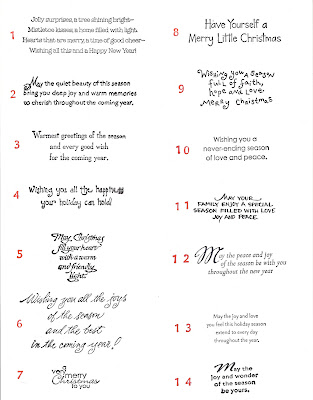 1
Jolly surprises, a tree shining bright~
Mistletoe kisses, a home filled with light.
Hearts that are merry, a time of good cheer~
Wishing all this and a Happy New Year!
2
May the quiet beauty of this season
bring you deep joy and warm memories
to cherish throughout the coming year.
3
Warmest greetings of the season
and every good wish
for the coming year.
4
Wishing you all the happiness
your holiday can hold!
5
May Christmas
fill your heart
with a warm
and friendly
light.
6
Wishing you all the joys
of the season
and the best
in the coming year!
7
verry
merry
Christmas
to you
8
Have Yourself a
Merry Little Christmas
9
Wishing you a season
full of faith,
hope and love.
Merry Christmas
10
Wishing you a
never-ending season
of love and peace.
11
MAY YOUR
FAMILY ENJOY A SPECIAL
SEASON FILLED WITH LOVE
JOY AND PEACE.
12
May the peace and joy
of the season be with you
throughout the new year
13
May the joy and love
you feel this holiday season
extend to every day
throughout the year.
14
May the
joy and wonder
of the season
be yours.